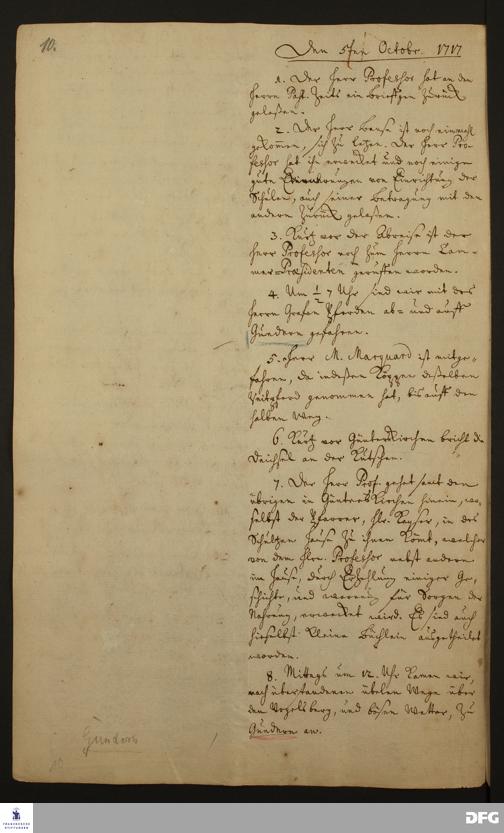 10.
Den 5ten Octobr. 1717
1. Der Herr Professor hat an den
Herrn Past. Zeits ein Brieffgen zurück
gelaßen.
2. Der Herr Bense ist noch einmahl
gekommen, sich zu letzen. Der Herr Pro-
fessor hat ihn erwecket und noch einige
gute Erinnerungen von Einrichtung der
Schulen, auch seiner Betragung mit den
andern zurück gelaßen.
3. Kurtz vor der Abreise ist der
Herr Professor noch zum Herrn Cam-
mer-Præsidenten geruffen worden.
4. Um ½ 7 Uhr sind wir mit des
Herrn Grafen Pferden ab- und auff
Gundern gefahren.
5. Herr M. Marquard ist mitge-
fahren, da indeßen Köppen deßelben
Reitpferd genommen hat, bis auff den
halben Weg.
6. Kurtz vor Günterskirchen bricht die
Deichsel an der Kutschen.
7. Der Herr Prof. gehet samt den
übrigen in Günterskirchen hinein, wo-
selbst der Pfarrer, Hr. Kayser, in des
Schultzen Hause zu ihnen kömt, welcher
von dem Hrn. Professor nebst andern
im Hause, durch Erzehlung einiger Ge-
schichte, und warnung für Sorgen der
Nahrung, erwecket wird. Es sind auch
hieselbst kleine Büchlein ausgetheilet
worden.
8. Mittags um 12. Uhr kamen wir,
nach überstandenen übelen Wege über
den Vogelsberg, und bösen Wetter, zu
Gundern an.
Gundern
FRANCKESCHE
STIFTUNGEN
DFG